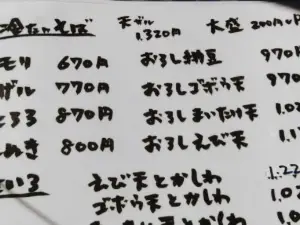 冷たいそば 天ザル 1,320円 大盛 200円
モリ 670円 おろし納豆 970円
ザル 770円 おろしゴボウ天 970
とろろ 870円 おろしまいたけ天 1.0
800円 おろしえび天 1.1
えび天とかしわ 1.22
ゴボウ天とかしわ 1.0
天とかしわ 1.0